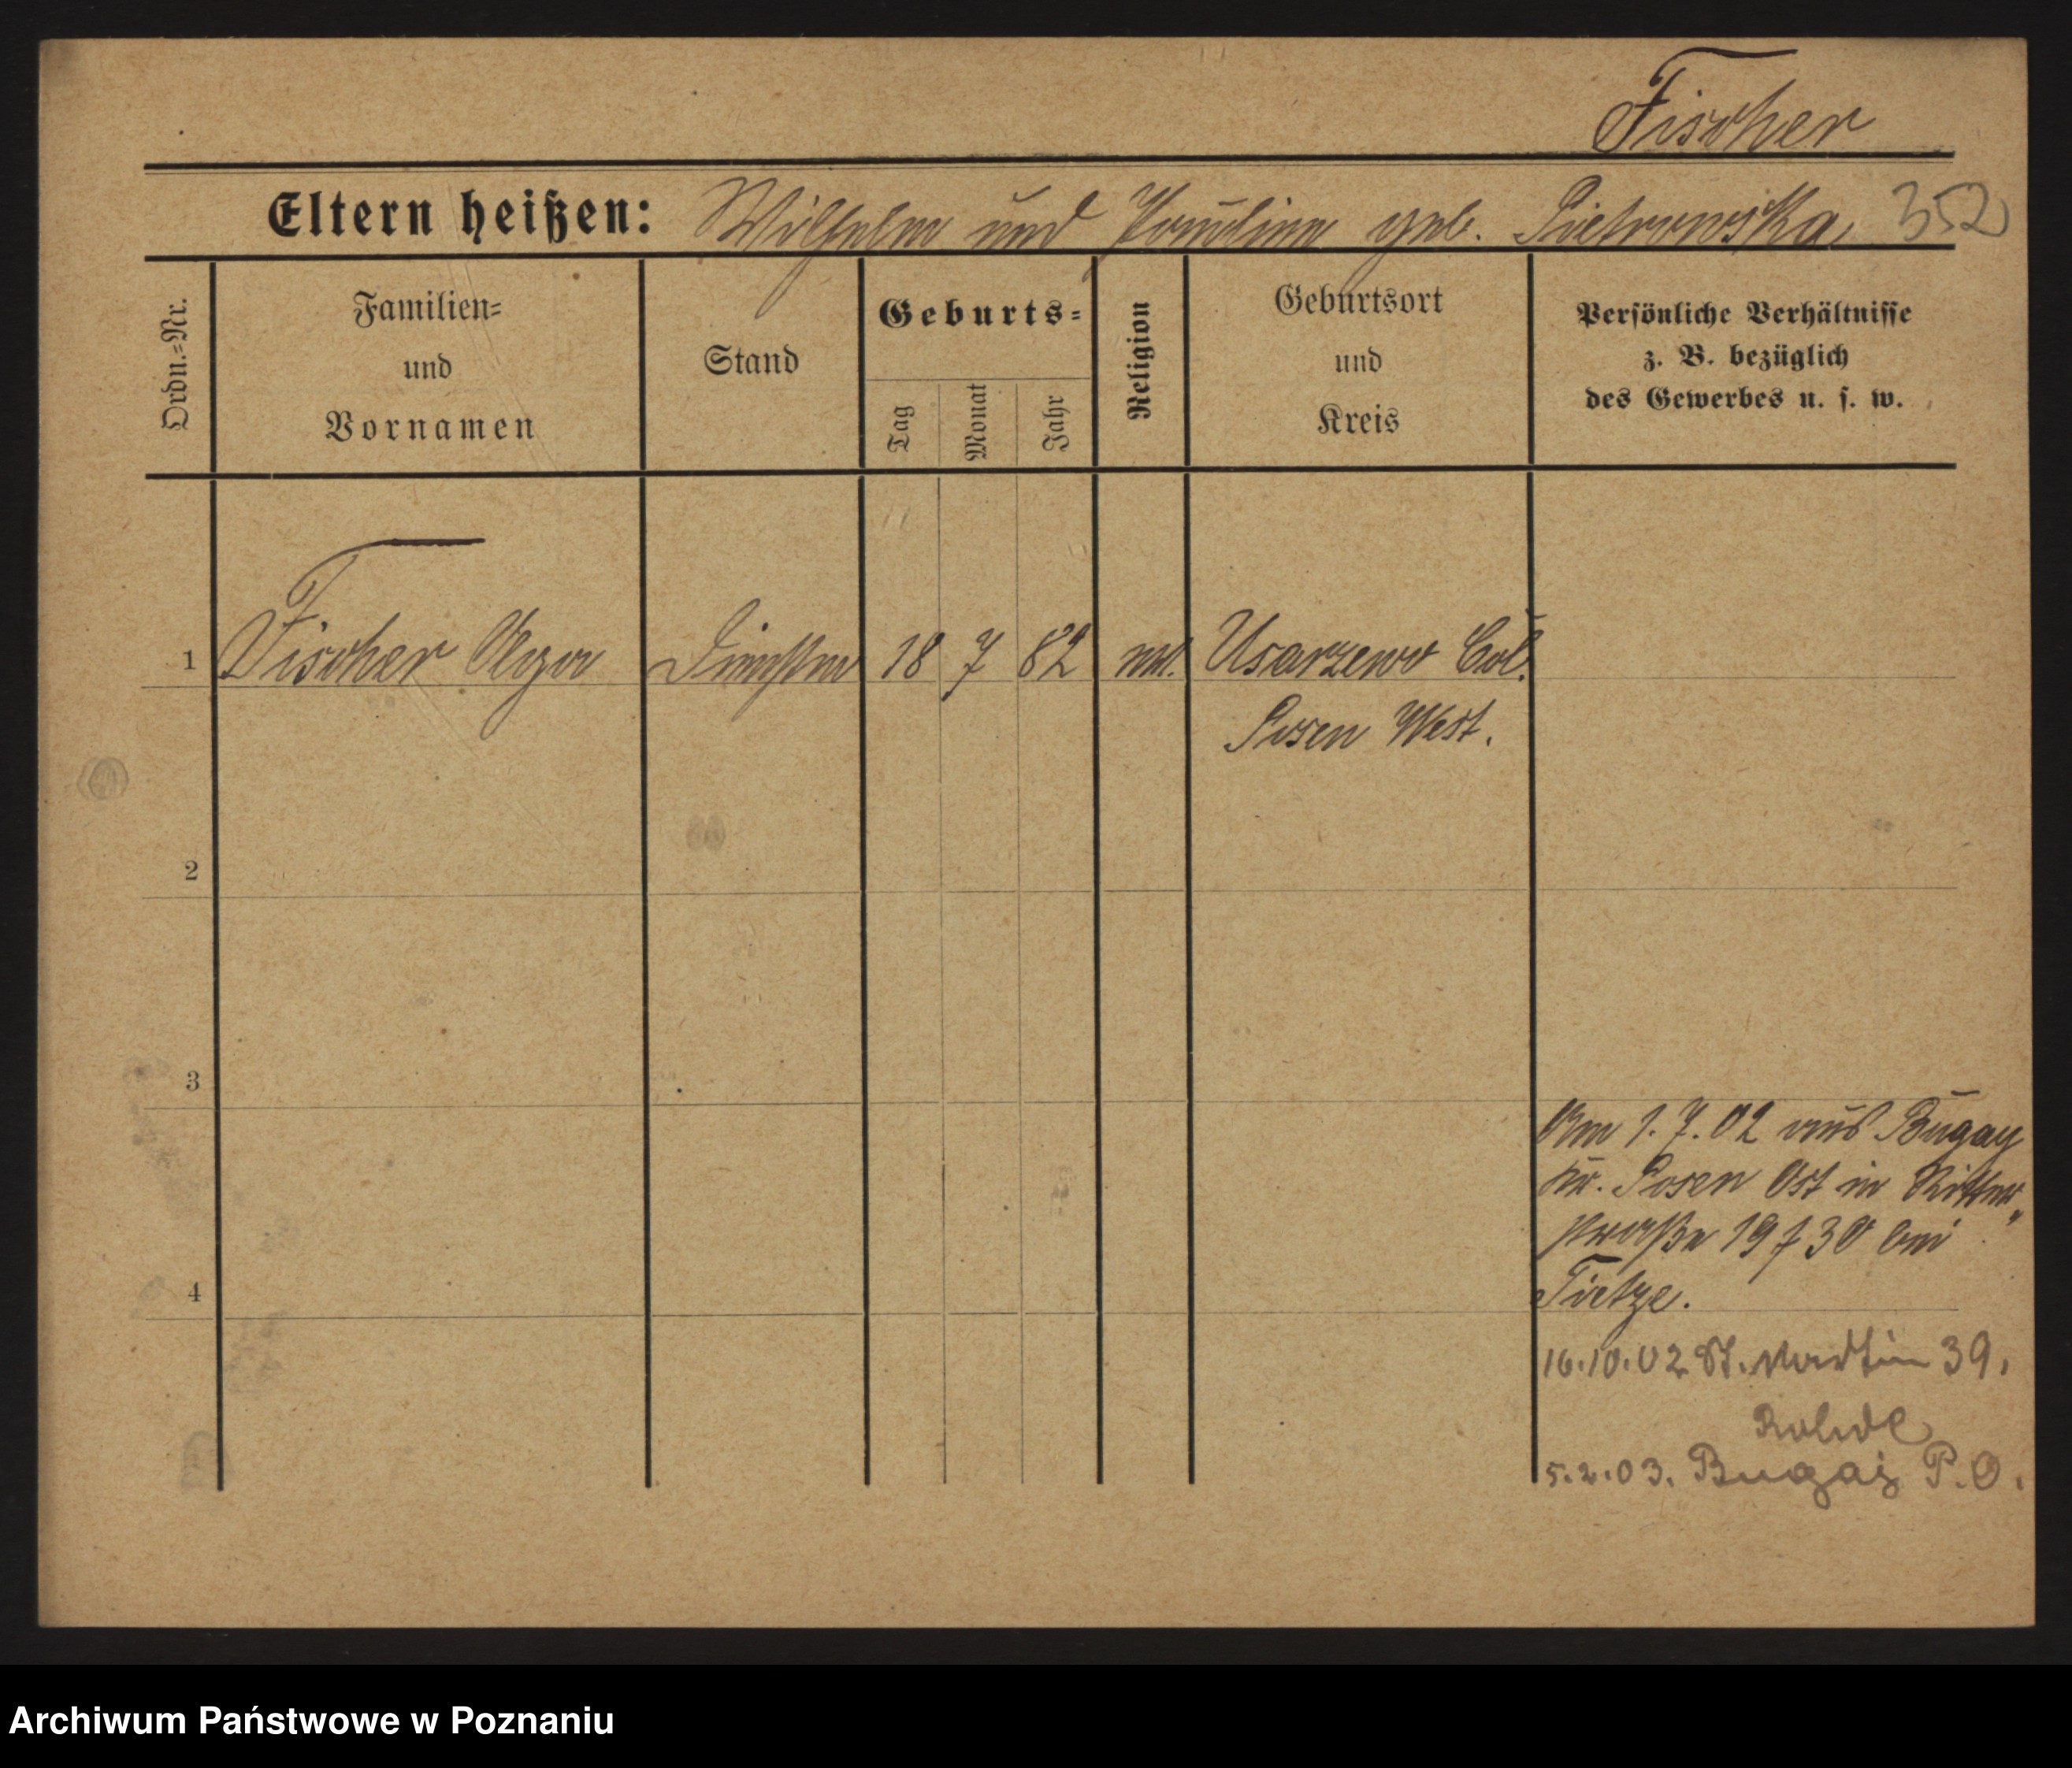 Fischer
Eltern heißen: Wilhelm und Pauline geb. Pietrowska, 352
Ordn.=Nr.
Familien=
und
Vornamen
Stand
Geburts=
Tag
Monat
Jahr
Religion
Geburtsort
und
Kreis
Persönliche Verhältnisse
z. B. bezüglich
des Gewerbes u. s. w.
1 Fischer 18 7 82 Usarzewo Col.
Posen West.
2
3
Am 1.7.02 aus Bugay
Kr. Posen Ost in Ritter„
straße 19 f 30 bei
4 Tietze.
16.10.02 St. Martin 39.
Rohde
5.2.03. Bugaj P.O.
Archiwum Państwowe w Poznaniu